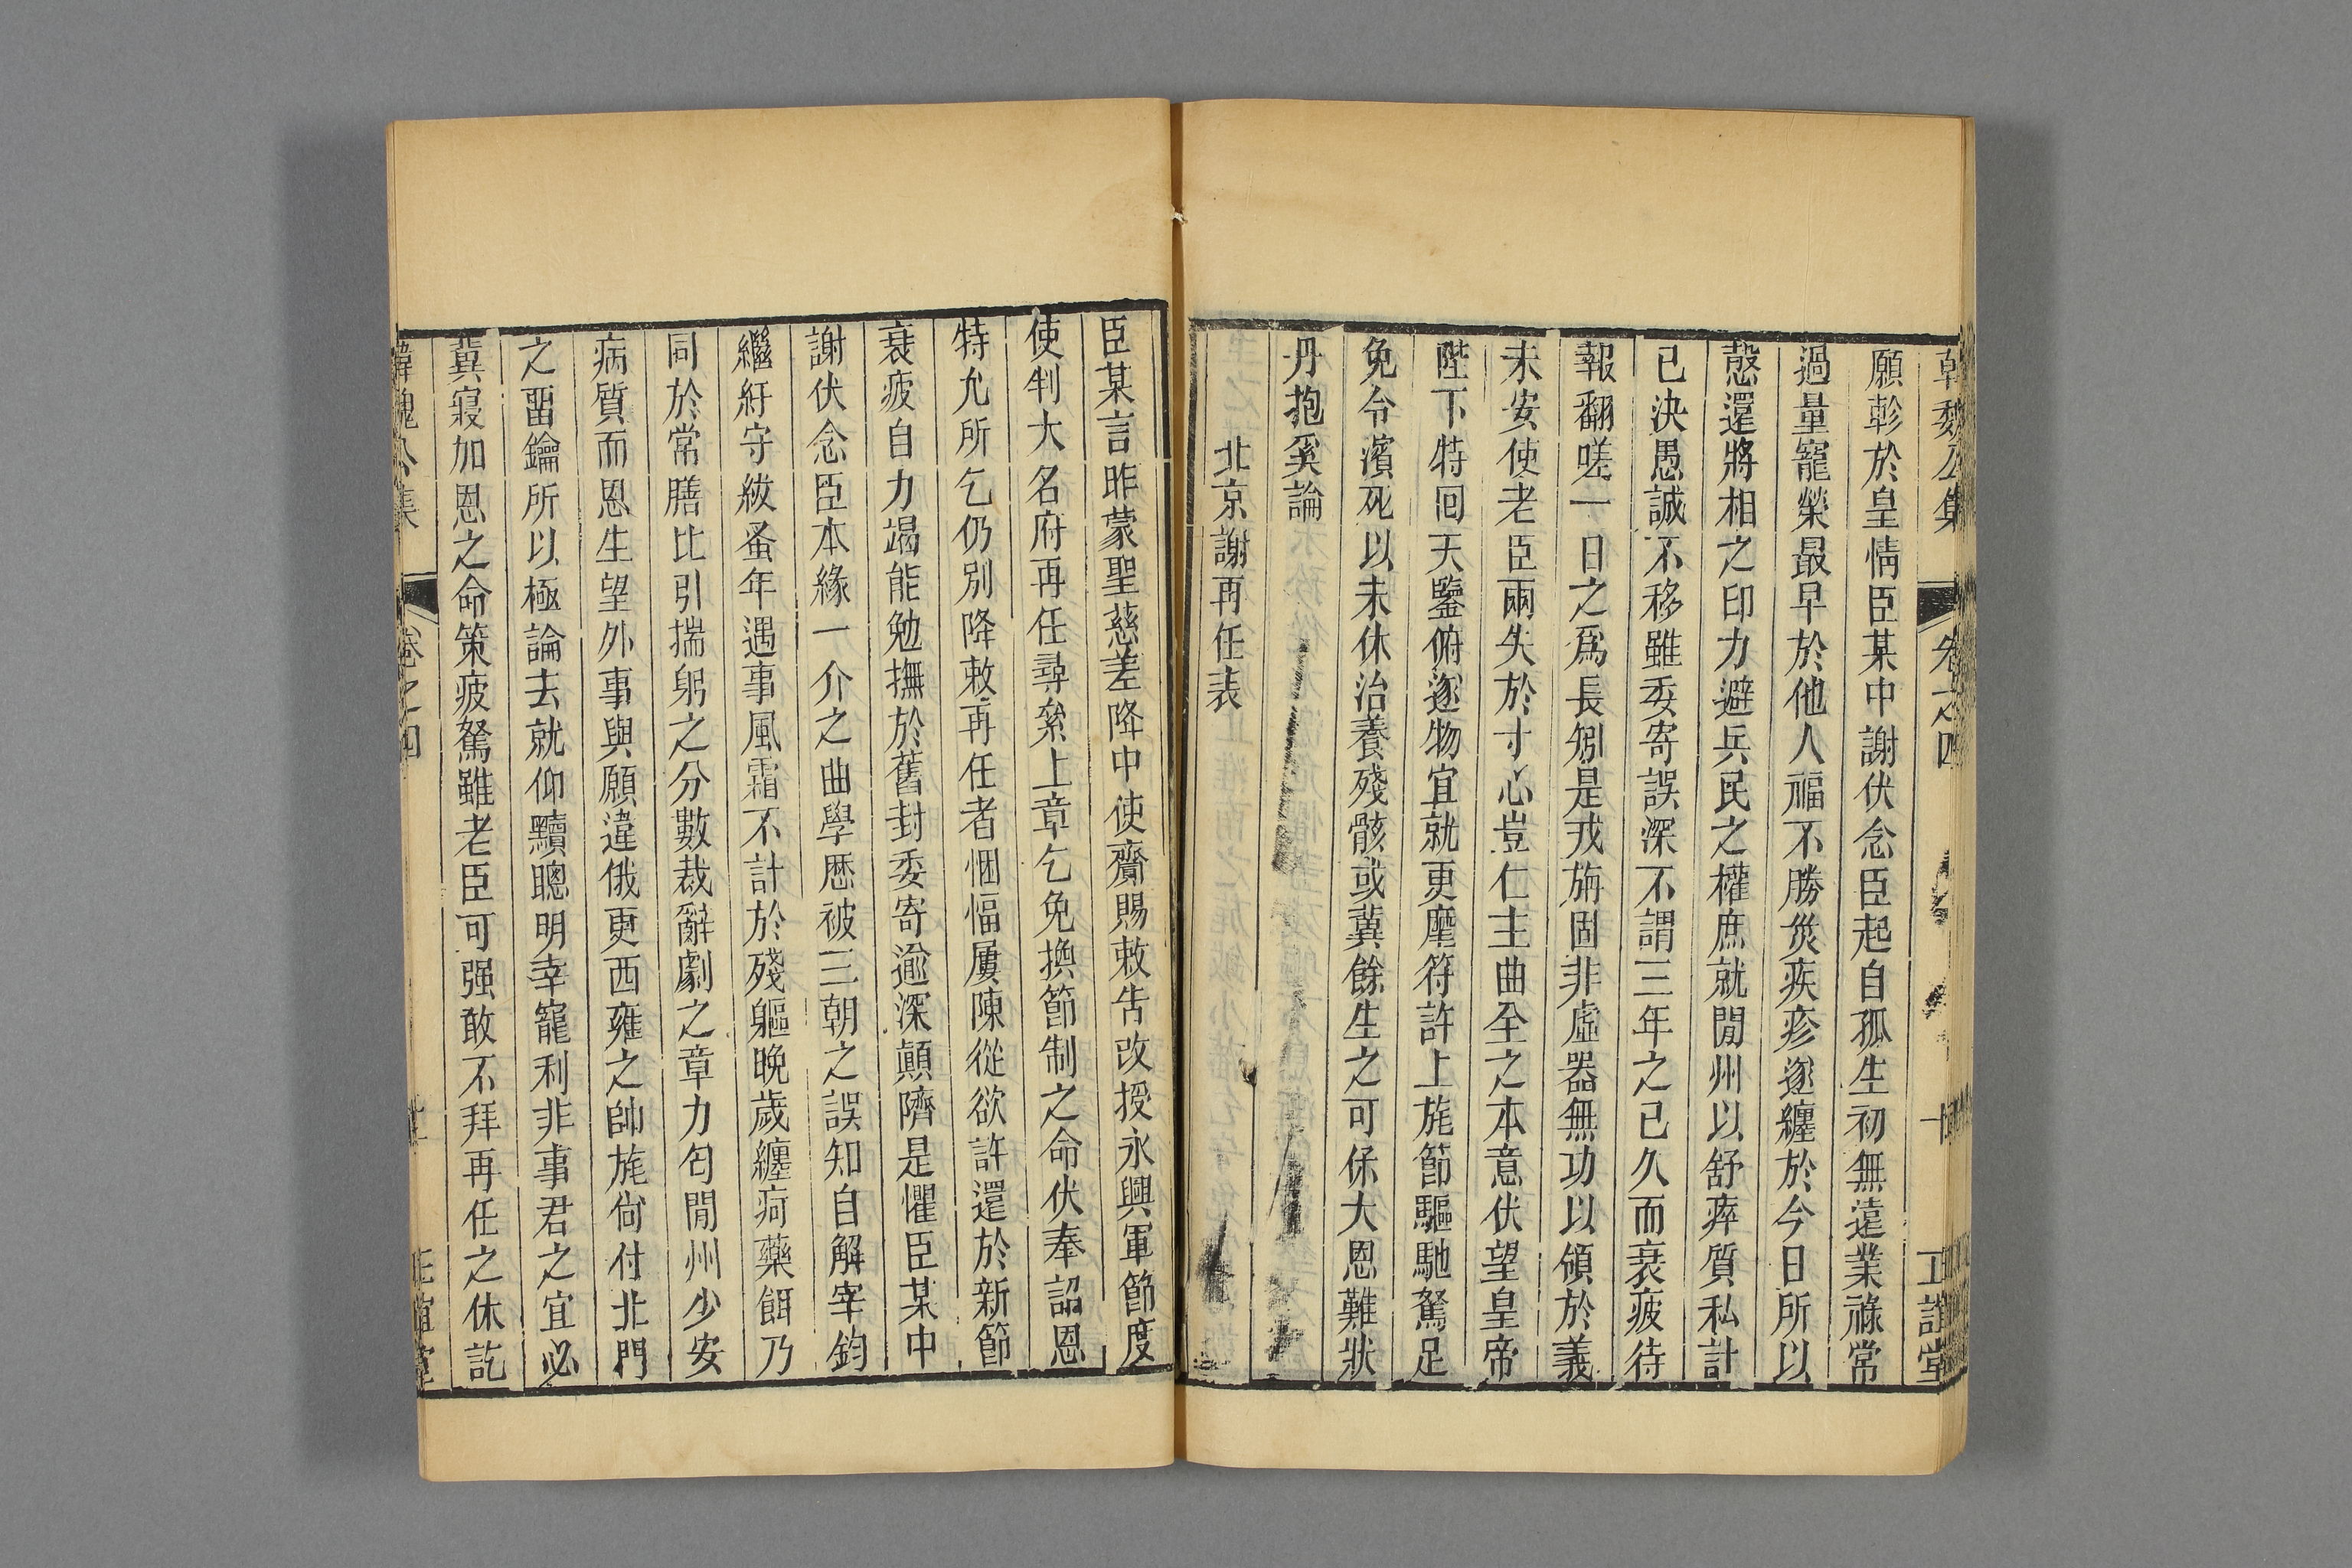 韓魏公集 卷之四 正誼堂
願軫於皇情臣某中謝伏念臣起自孤生初無遠業祿常
過量寵榮最早於他人福不勝災疾疹遂纏於今日所以
慤還將相之印力避兵民之權庶就閒州以舒瘁質私計
已決愚誠不移雖委寄誤深不謂三年之已久而衰疲待
報翻嗟一日之爲長矧是戎旃固非虛器無功以領於義
未安使老臣兩失於寸心豈仁主曲全之本意伏望皇帝
陛下特回天鑒俯遂物宜就更麾符許上旄節驅馳駑足
免令濱死以未休治養殘骸或冀餘生之可保大恩難狀
丹抱奚論
北京謝再任表
臣某言昨蒙聖慈差降中使齎賜敕告改授永興軍節度
使判大名府再任尋絫上章乞免換節制之命伏奉詔恩
特允所乞仍別降敕再任者悃愊屢陳從欲許還於新節
衰疲自力竭能勉撫於舊封委寄逾深顛隮是懼臣某中
謝伏念臣本緣一介之曲學歷被三朝之誤知自解宰鈞
繼紆守紱蚤年遇事風霜不計於殘軀晚歲纏疴藥餌乃
同於常膳比引揣躬之分數裁辭劇之章力匄閒州少安
病質而恩生望外事與願違俄更西雍之帥旄尙付北門
之畱鑰所以極論去就仰黷聰明幸寵利非事君之宜必
冀寢加恩之命策疲駑雖老臣可强敢不拜再任之休訖
韓魏公集 卷之四 正誼堂